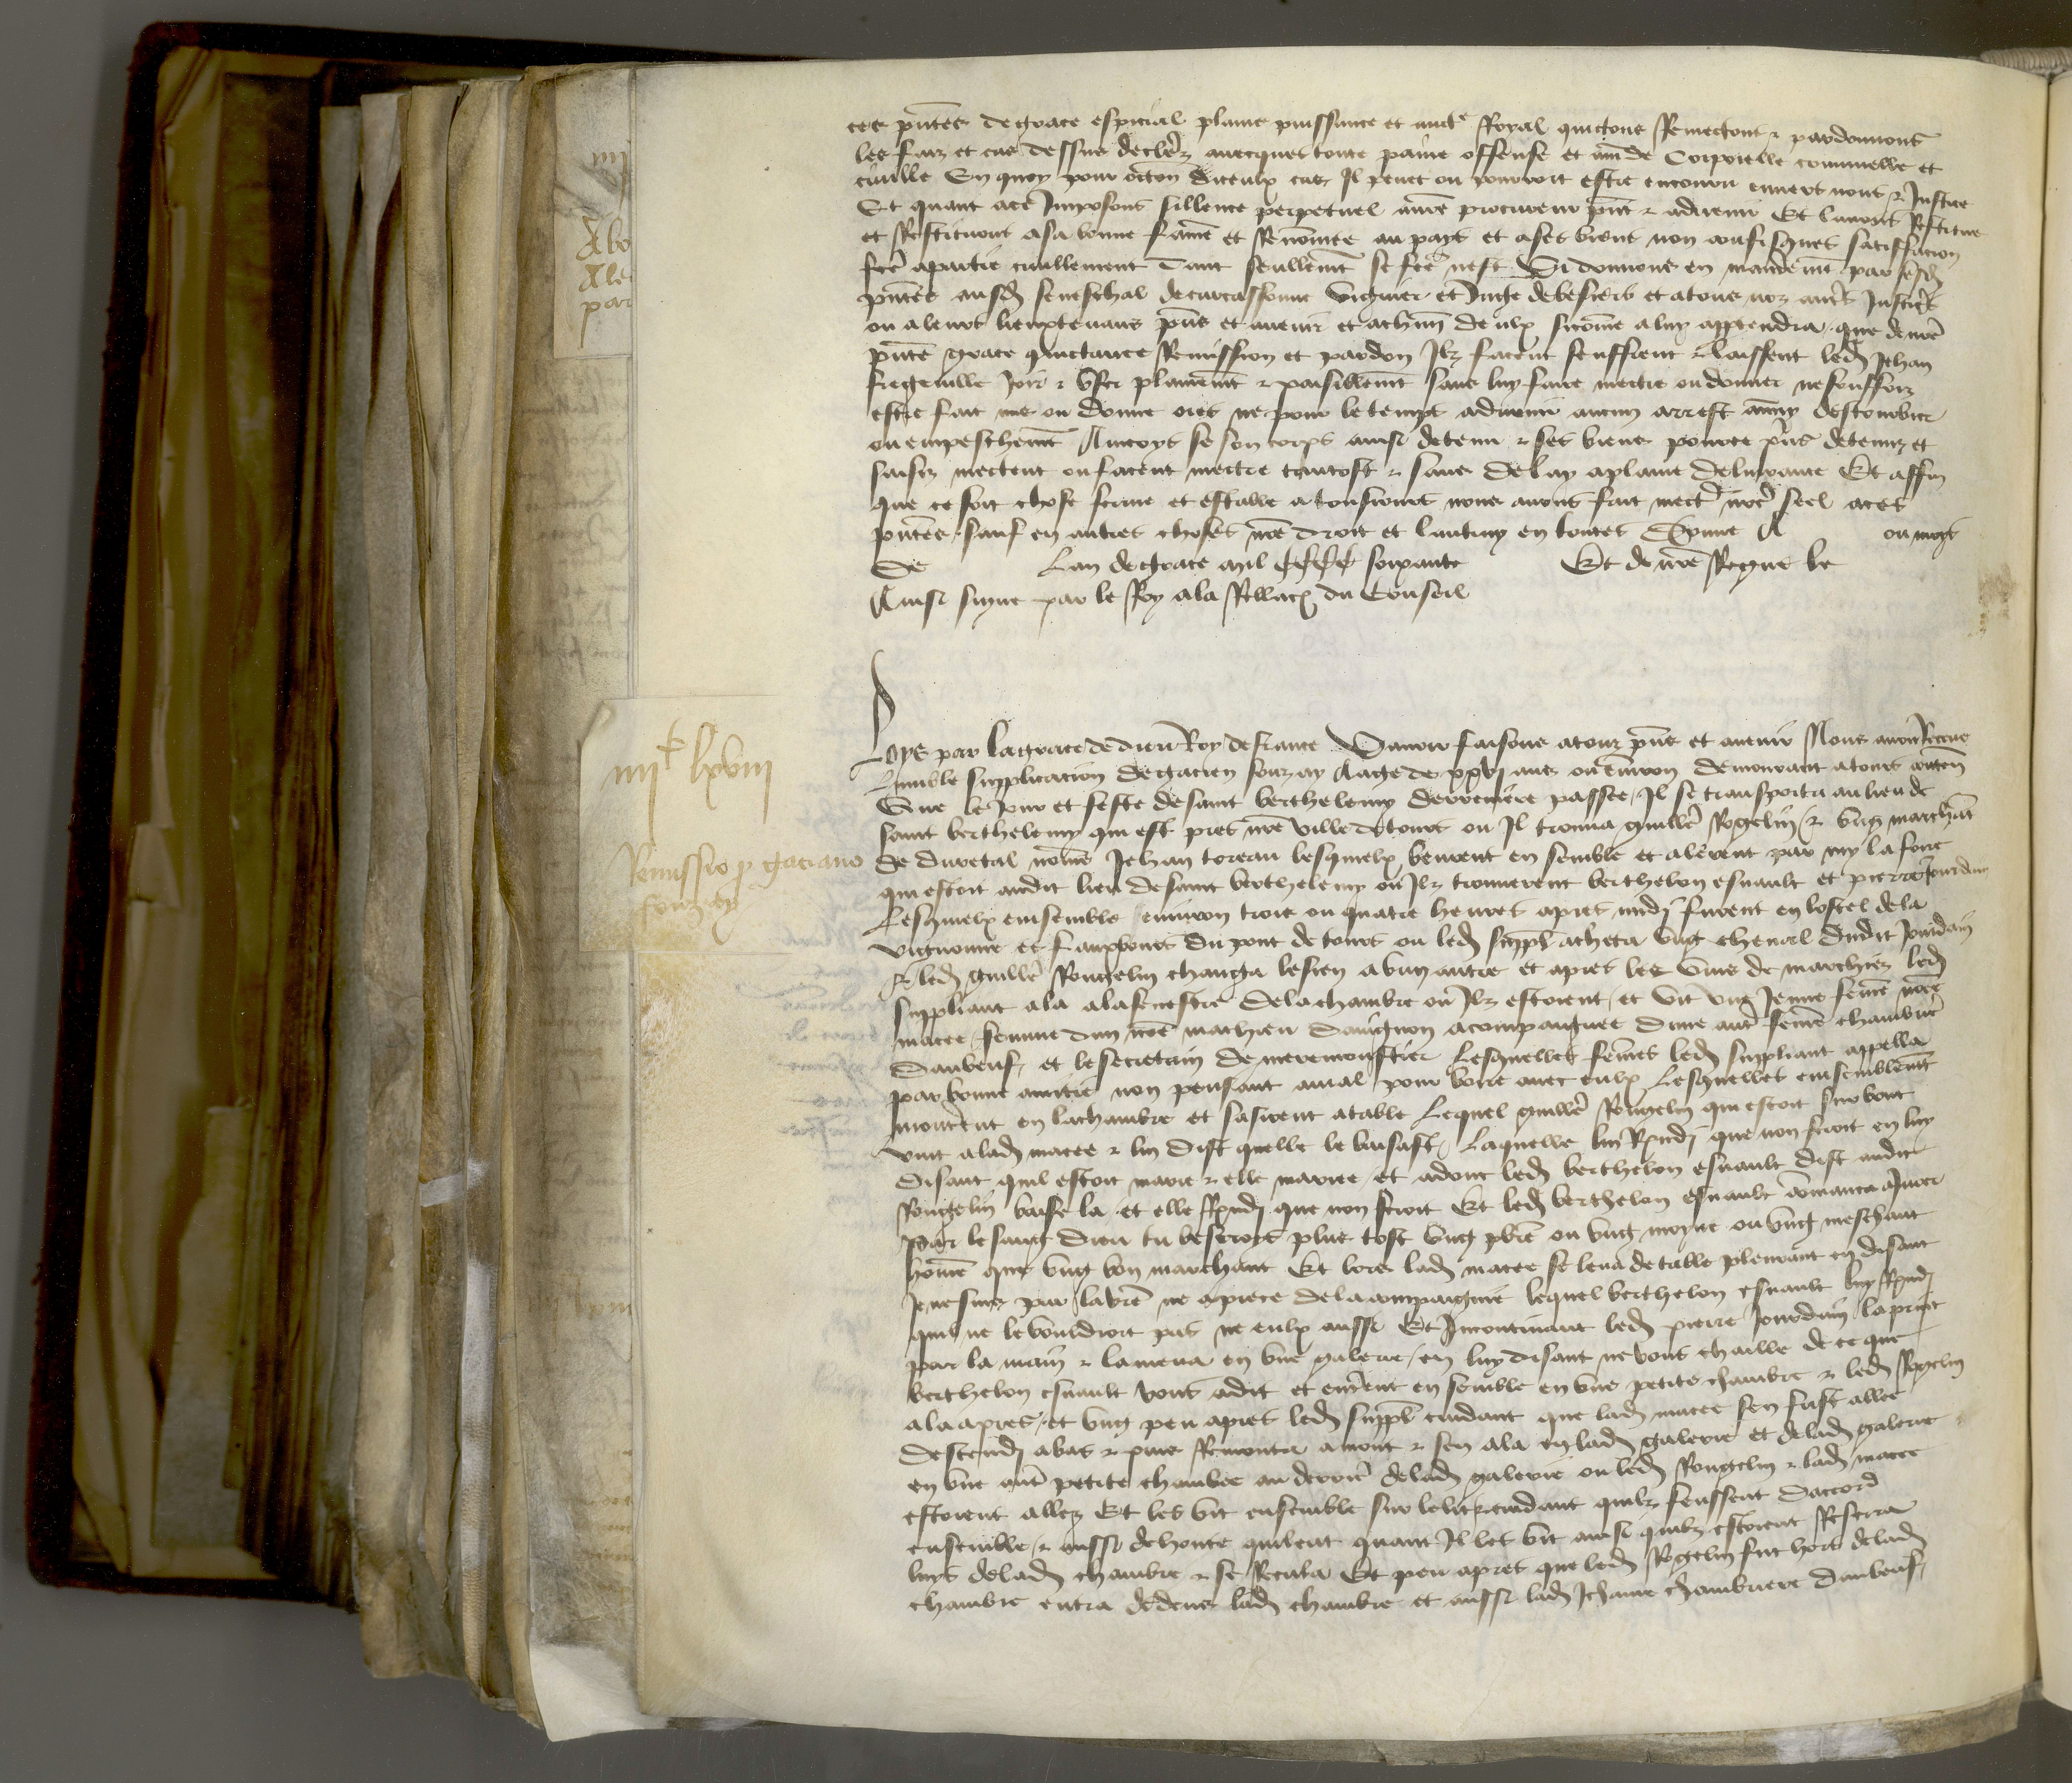 ces pntes de grace espicial plaine puissance et aucte Royal quictons Remectons & pardonnons
les faiz et cas dessus declerez auecques toute paine offense et amde Corporelle criminelle et
ciuille En quoy pour occon diceulx cas Il peuet ou pourroit estre encouru enuers nous & Justice
Et quant ace Imposons sillence perpetuel anre procureur pnt & aduenir Et lauons Restitue
et Restituons asa bonne fame et Renomee au pays et ases biens non confisques satisfacion
fcte apartie ciuillement Tant seullemt se fcte nest Si donnons en mandemt par sesd
pntes ausd seneschal de carcassonne viguier et Juge de besiers et atous noz autres Justiciers
ou aleurs lieuxtenans pns et auenir et achun deulx sicome aluy appendra que de nre
pnte grace quictance Remission et pardon Ilz facent seuffrent & laissent led Jehan
fregeville Joir & vser plainemt & paisiblemt sans luy faire mectre ou donner ne souffrir
estre fait mis ou donne ores ne pour le temps aduenir aucun arrest ennuy destourbier
ou empeschemt Aincoys se son corps ainsi detenu & ses biens pource pris detenuz et
saisiz mectent ou facent mectre tantost & sans delay aplaine deliurance Et affin
que ce soit chose ferme et estable atousiours nous auons fait mectre nre seel aces
pntes sauf en autres choses nre droit et lautruy en toutes Donne A ou moys
De Lan de grace mil cccc soixante Et de nre Regne le
Ainsi signe par le Roy ala Rellacon du Conseil
Loys par la grace de dieu Roy de france Sauoir faisons atouz pns et auenir Nous auoir Receue
Lumble supplicacion de gacien fouzay Aage de xxvj ans ou enuiron demourant atours conten
Que le Jour et feste de saint berthelemy derreniere passee Il se transporta au lieu de
saint berthelemy qui est pres nre ville de tours ou Il trouua guille Rogelin & vng marchant
de duretal nome Jehan toreau lesquelx beurent ensemble et alerent par my la foire
qui estoit audit lieu de saint berthelemy ou Ilz trouuerent berthelon esnault et pierre Jourdain
Lesquelx ensemble enuiron trois ou quatre heures apres midj furent en lostel dela
vignonne es faulxbours du pont de tours ou led suppl acheta vng cheual dudit Jourdain
& led guille Rougelin changa lesien avng autre et apres les vins de marchiez led
suppliant ala alafenestre dela chambre ou Ilz estoient et vit vng Jenne feme nomee
macee femme dun nome mathieu dauignon acompaignee dune autre feme chambriere
Daubeuf et le secretain de mermonstier Lesquelles femes led suppliant appella
par bonne amitie non pensant amal pour boire auec eulx Lesquelles ensemblemt
monterent en lachambre et sasirent atable Lequel guille Rougelin qui estoit sur bout
vint alad macee & luy dist quelle le baisast Laquelle luy Rpndj que non feroit en luy
disant quil estoit marie & elle mariee et adonc led berthelon esnault dist audit
Rougelin baise la et elle Rpndj que non feroit Et led berthelon esnault comanca ajurer
par le sang dieu tu beseroys plus tost vng pbre ou vng moyne ou vng meschant
home que vng bon marchant Et lors lad macee se leua de table pleurant en disant
Je ne suis par la vre ne apiece dela compaignie lequel berthelon esnault luy Rpndj
quil ne le vouldroit pas ne eulx aussi Et Incontinant led pierre Jourdain la print
par la main & lamena en vne galerie en luy disant ne vous chaille de ce que
berthelon esnault vous adit et entrerent ensemble en vne petite chambre & led Rogelin
ala apres et vng peu apres led suppl cuidant que lad macee sen fust allee
descendj abas & puis Remonta amont & sen ala en lad galerie et de lad galerie
en vne autre petite chambre au derriere delad galerie ou led Rougelin & lad macee
estoient allez Et les vit ensemble sur le lit cuidant quilz feussent daccord
ensemble & aussi de honte quileut quant Il les vit ainsi quilz estoient Reserra
luys delad chambre & se Recula Et peu apres que led Rogelin fut hors delad
chambre entra dedens lad chambre et aussi lad Jehanne chambriere daubeuf
iiijc lxviij
Remissio p gaciano
fouzay